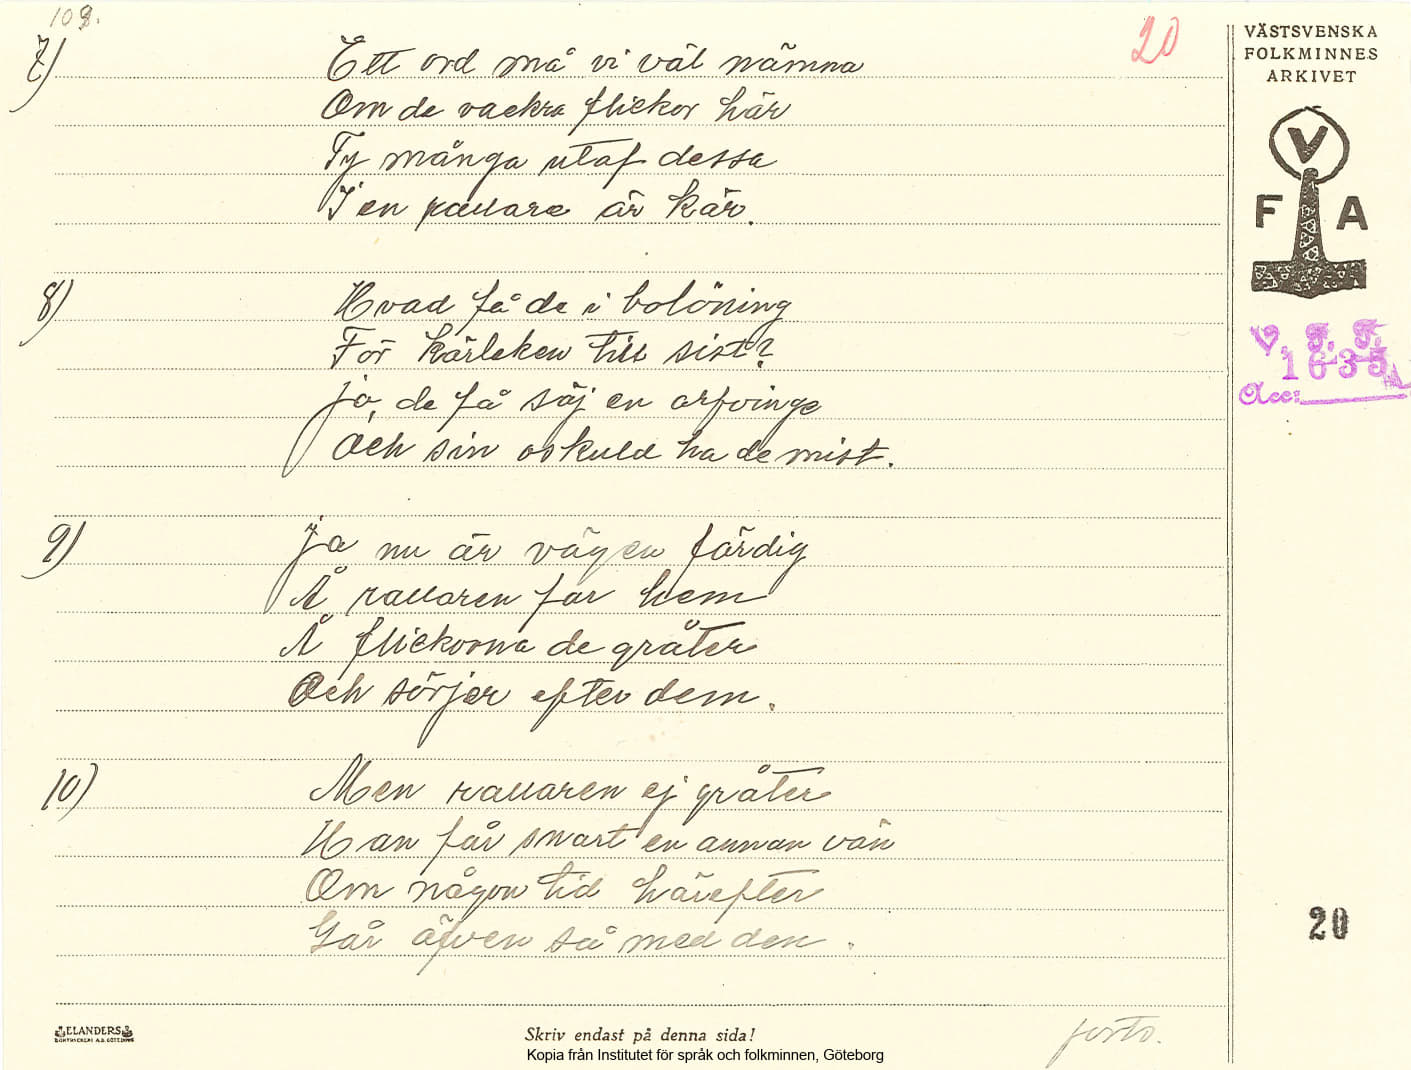 108.
20
VÄSTSVENSKA
FOLKMINNES
ARKIVET
7)
Ett ord må vi väl nämna
Om de vackra flickor här
Ty många utaf dessa
I en rallare är kär.
V
F A
8)
Hvad få de i belöning
För kärleken till sist?
Jo, de få säj en arfvinge
Och sin oskuld ha de mist.
V. F. F.
1635
Acc:
9)
Ja nu är vägen färdig
Å rallaren far hem
Å flickorna de gråter
Och sörjer efter dem.
10)
Men rallaren ej gråter
Han får snart en annan vän
Om någon tid härefter
Går äfven så med den.
20
ELANDERS
BOKTRYCKERI A.B. GÖTEBORG
Skriv endast på denna sida!
Kopia från Institutet för språk och folkminnen, Göteborg